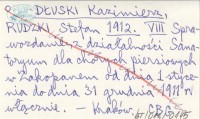 DŁUSKI Kazimierz,
RUDZKI Stefan 1912. VIII Spra-
wozdanie z działalności Sana-
toryum dla chorych piersiowych
w Zakopanem od dnia 1 stycz-
nia do dnia 31 grudnia 1911 r.
włącznie. – Kraków, CBA